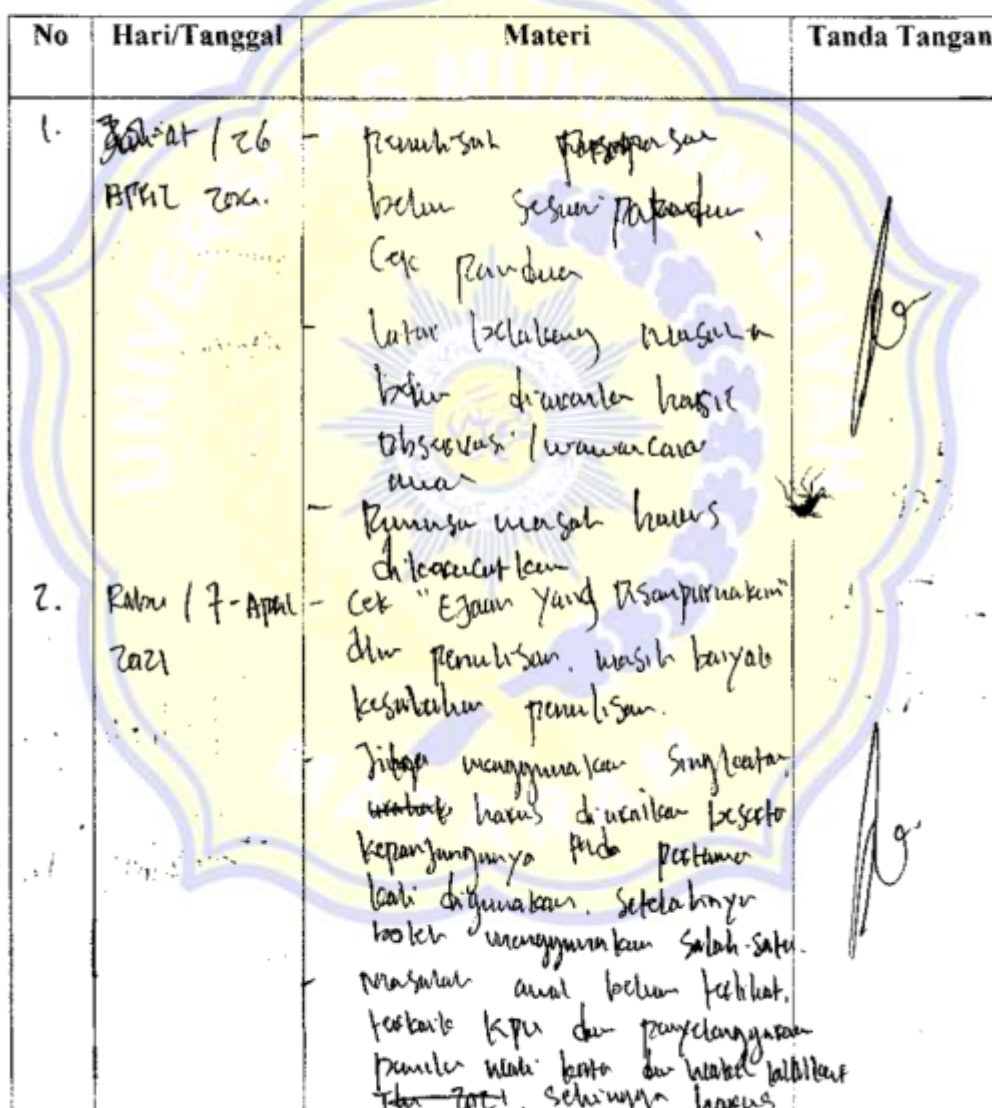 No Hari/Tanggal Materi Tanda Tangan
1. / 26 - penulisan
APRIL belum sesuai
Cek panduan
- latar belakang masalah
belum hasil
observasi / wawancara
awal
- masalah harus
dikerucutkan
2. Rabu / 7 - April - Cek "Ejaan Yang Disempurnakan"
2021 dlm penulisan, masih banyak
kesalahan penulisan.
- menggunakan singkatan,
harus diuraikan beserta
kepanjangannya pada pertama
kali digunakan. Setelahnya
boleh menggunakan salah-satu.
- masalah awal belum terlihat,
terkait KPU dan penyelenggaraan
pemilu wali kota dan wakil
2021, sehingga harus
UNIVERSITAS MUHAMMADIYAH
MATARAM